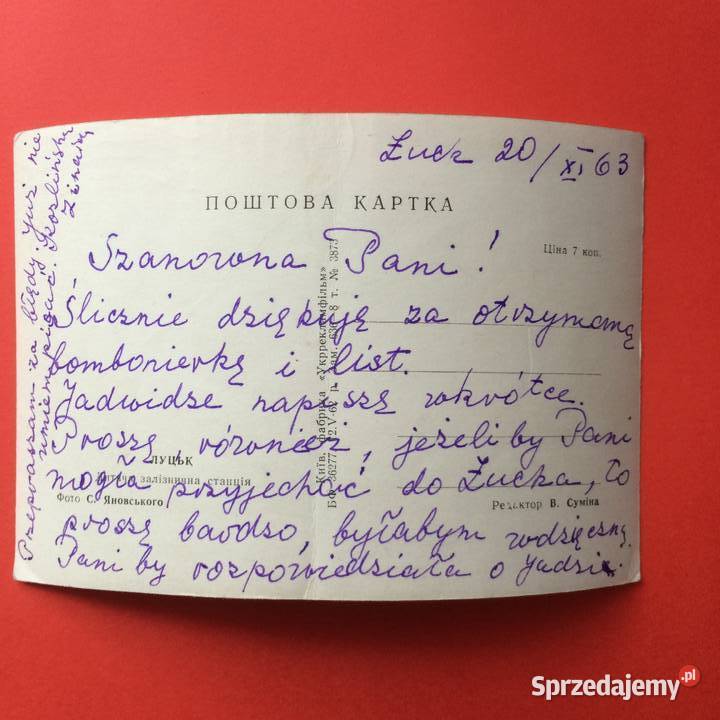 Łuck 20/XI 63
ПОШТОВА КАРТКА
Ціна 7 коп.
Szanowna Pani!
Ślicznie dziękuję za otrzymaną
bombonierkę i list.
Jadwidze napiszę wkrótce.
Proszę również, jeżeli by Pani
mogła przyjechać do Łucka, to
proszę bardzo, byłabym wdzięczną.
Pani by rozpowiedziała o Jadzi.
Przepraszam za błędy. Już nie
umiem pisać. Kozlińska
Zinaida
ЛУЦЬК
залізнична станція
Фото С. Яновського
Редактор В. Суміна
Київ, фабрика «Укррекламфільм»
БФ 36277. 12.V-62 р. Зам. 636 - 8 т. № 3873
Sprzedajemy.pl